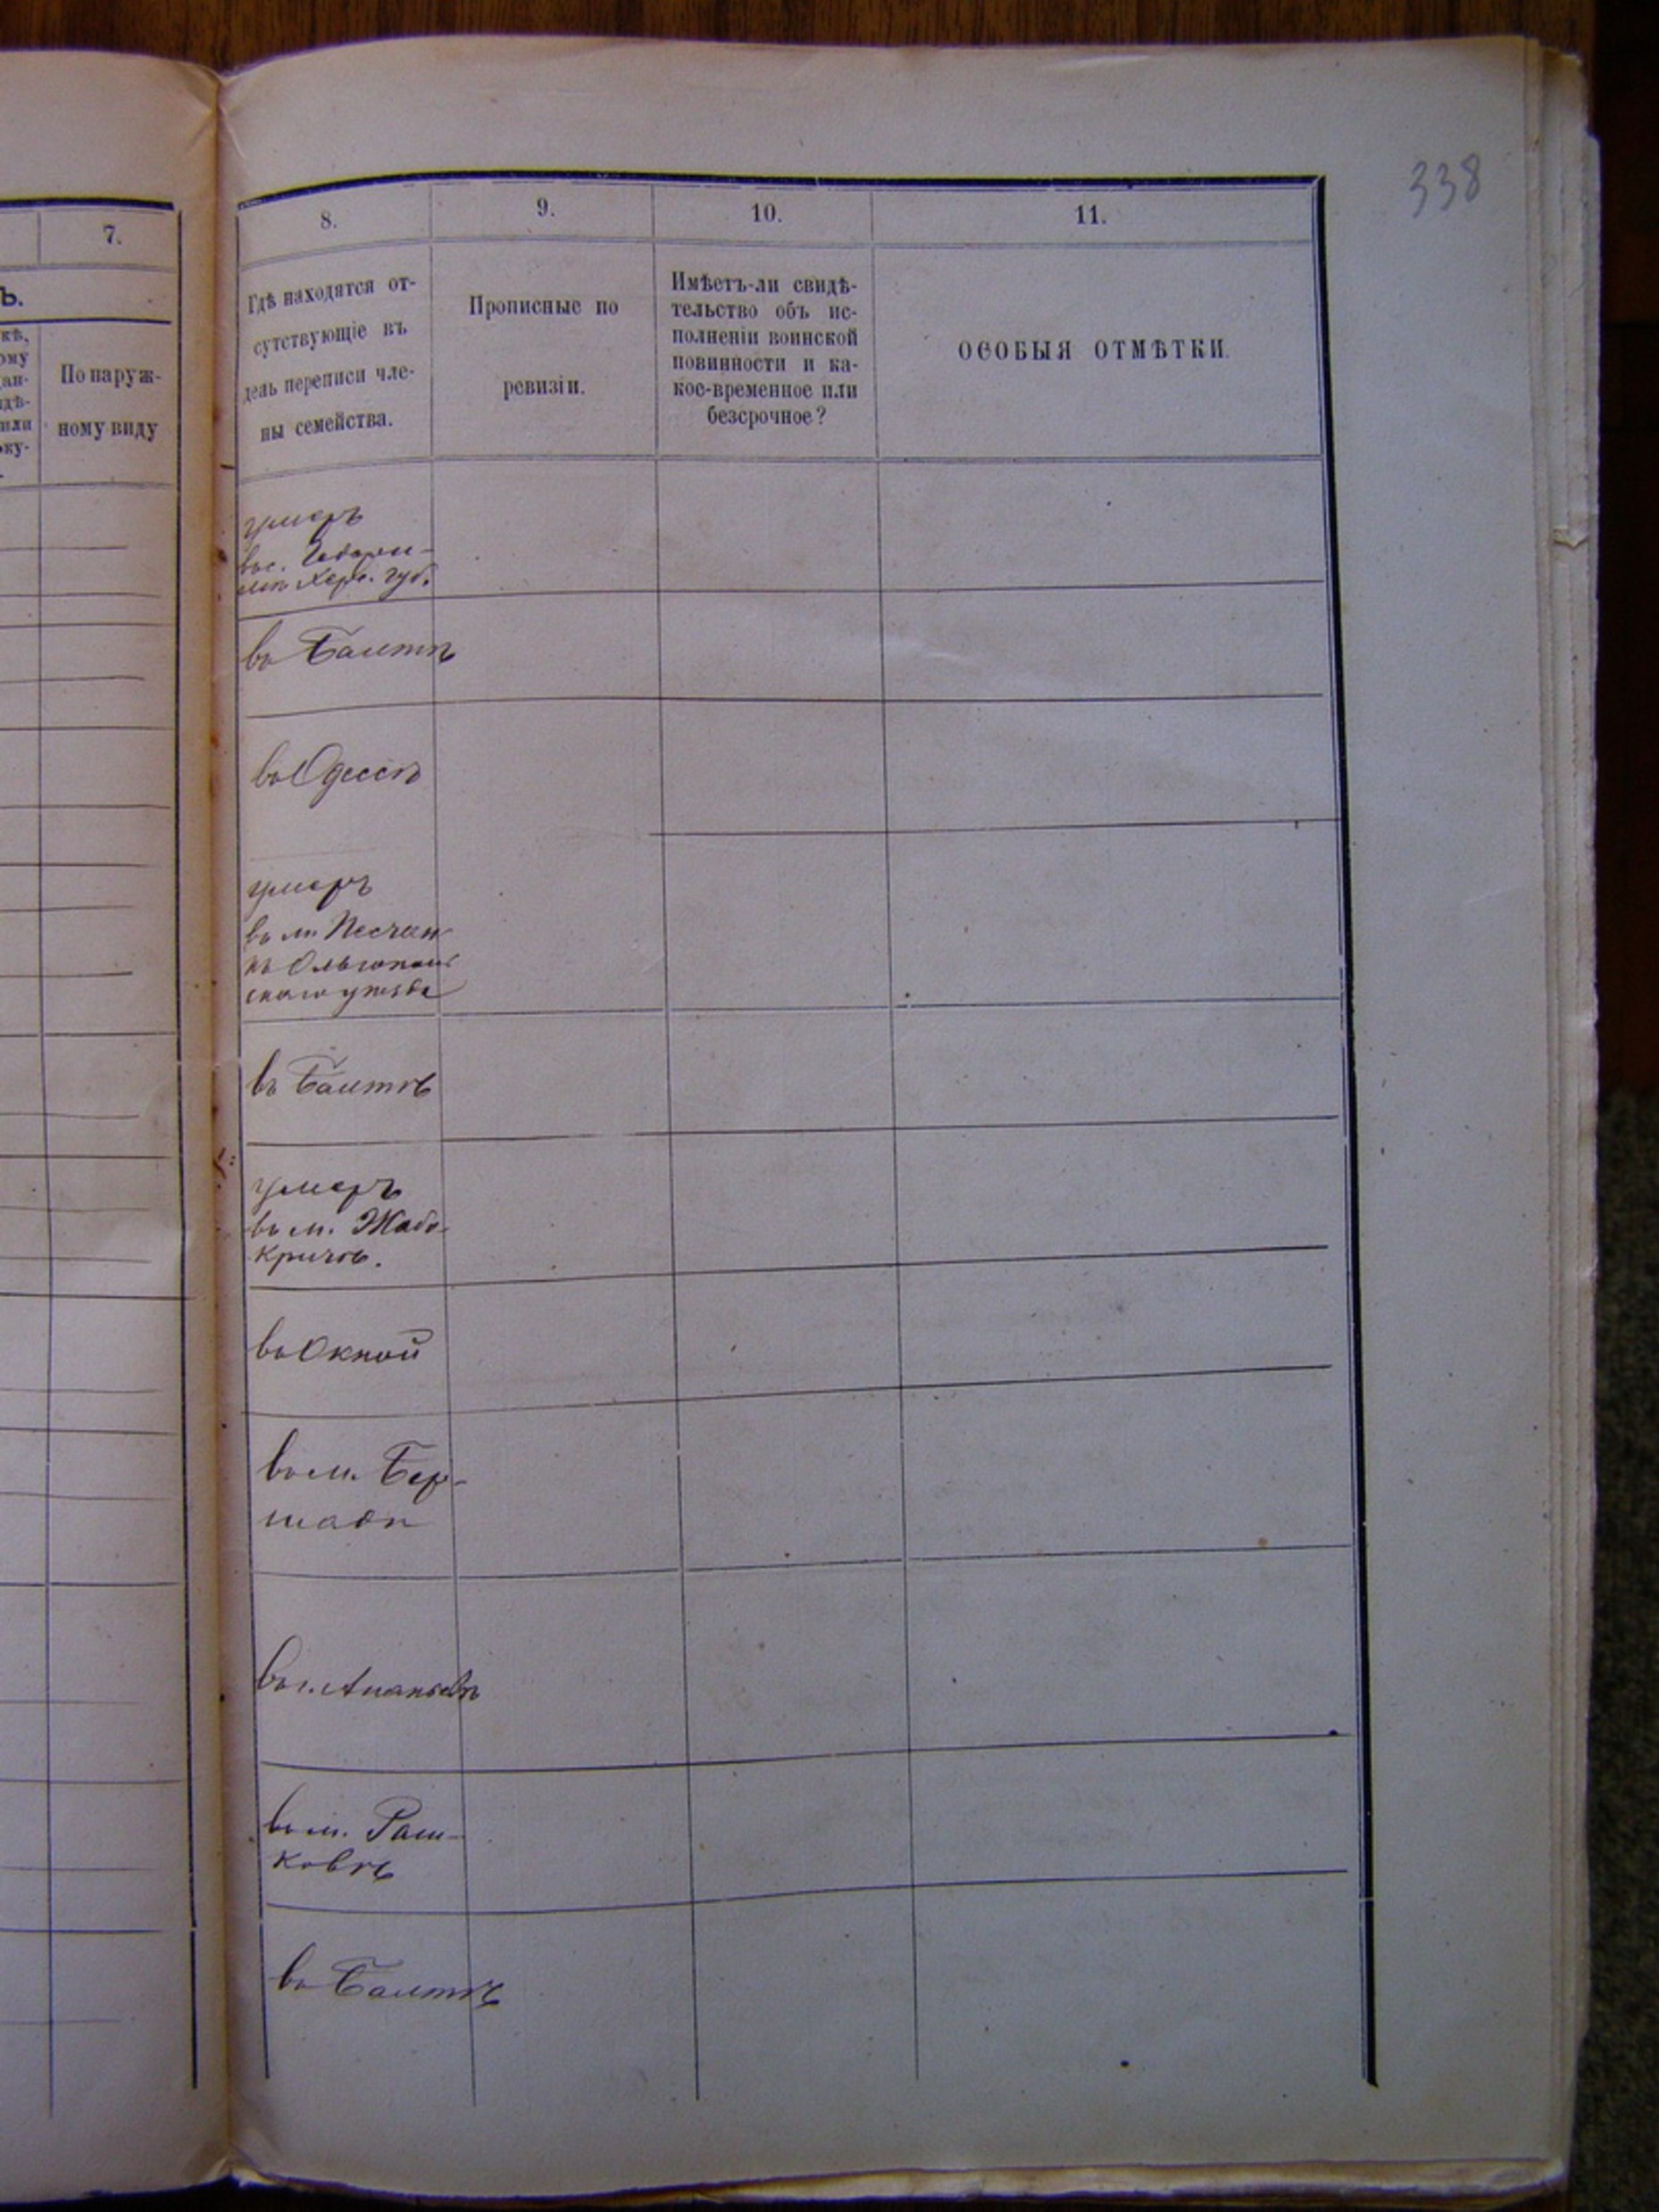 338
7.
Ъ.
кѣ,
ому
дан-
идѣ-
или
оку-
По наруж-
ному виду
8.
9.
10.
11.
Гдѣ находятся от-
сутствующіе въ
день переписи чле-
ны семейства.
Прописные по
ревизіи.
Имѣетъ-ли свидѣ-
тельство объ ис-
полненіи воинской
повинности и ка-
кое-временное или
безсрочное?
ОСОБЫЯ ОТМѢТКИ.
умеръ
въ с.
Херс. губ.
въ Балтѣ
въ Одессѣ
умеръ
въ м. Песчан
кѣ Ольгополь
скаго уѣзда
въ Балтѣ
умеръ
въ м. Жабо-
кричѣ.
въ Окной
въ м. Бер-
шади
въ г. Ананьевѣ
въ м. Раш-
ковѣ
въ Балтѣ